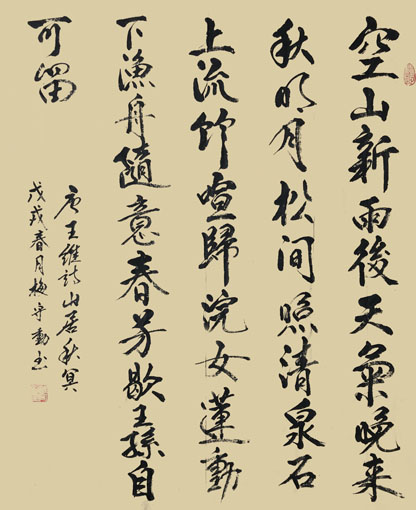 空山新雨後天氣晚来
秋明月松间照清泉石
上流竹喧歸浣女蓮動
下漁舟隨意春芳歇王孫自
可留
唐王維诗山居秋冥
戊戌春月梅守书